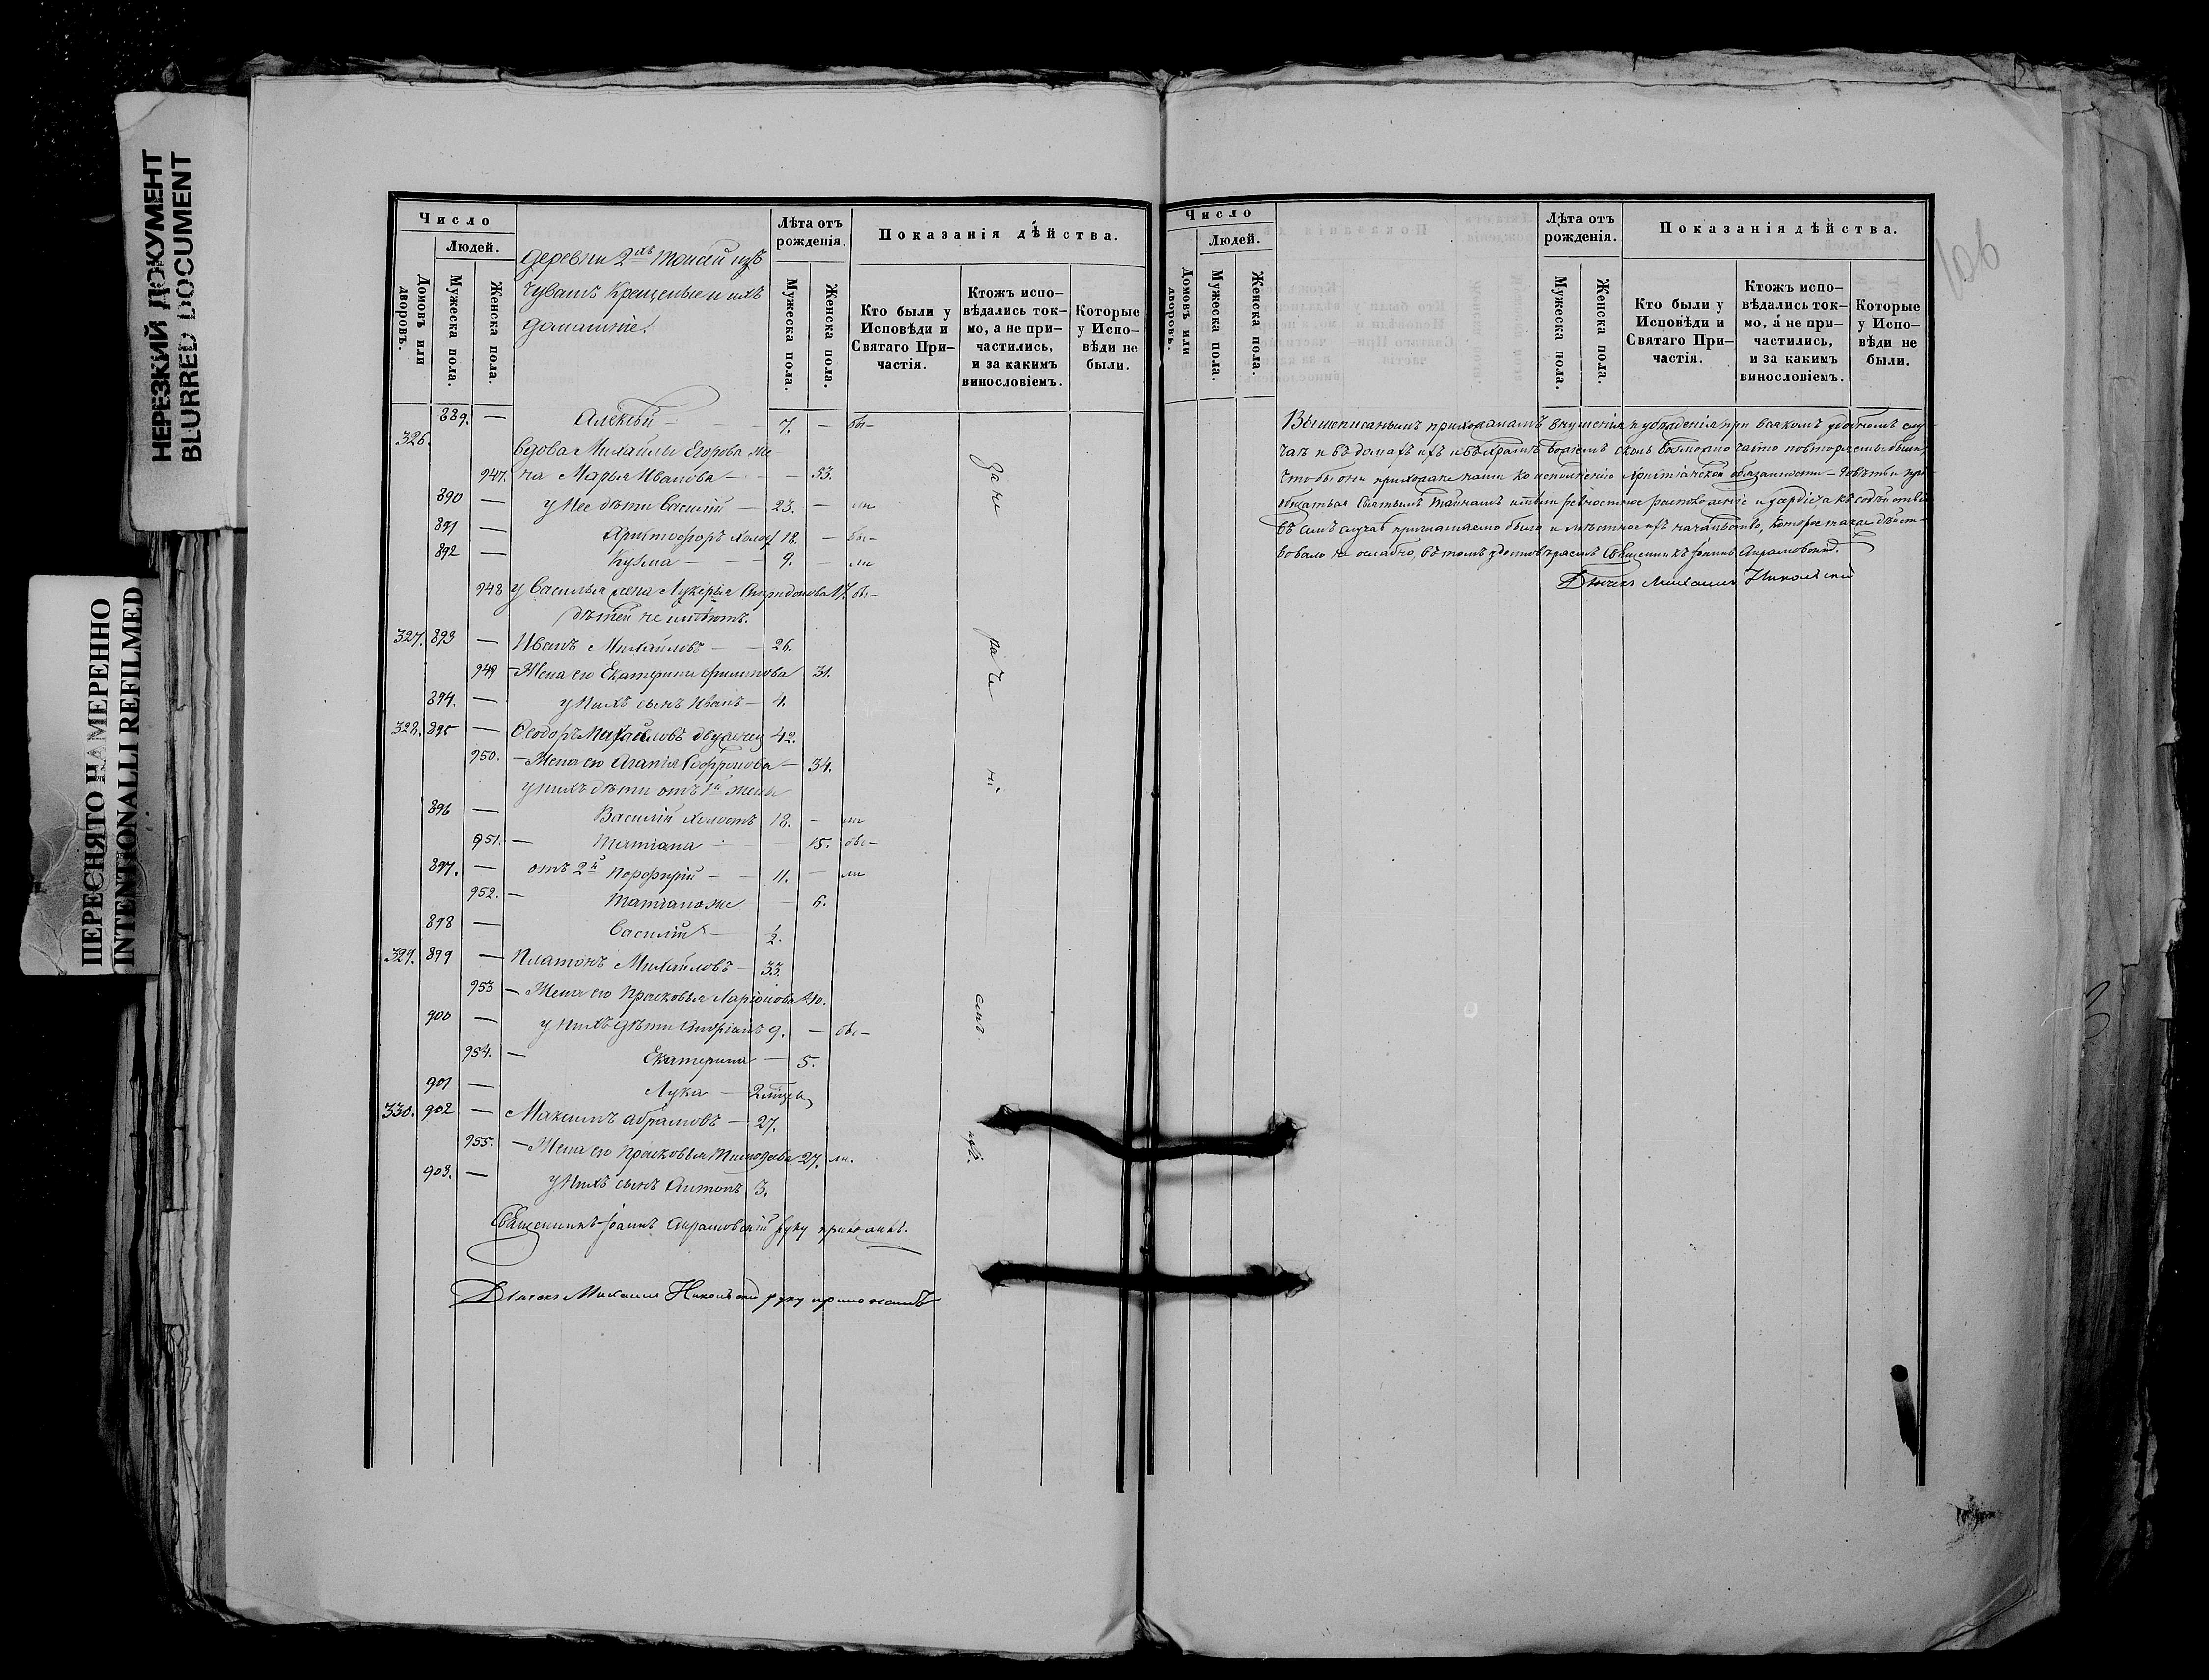 НЕРЕЗКИЙ ДОКУМЕНТ
BLURRED DOCUMENT
ПЕРЕСНЯТО НАМЕРЕННО
INTENTIONALLI REFILMED
Число
Людей.
Домовъ или дворовъ.
Мужеска пола.
Женска пола.
деревни 2хъ изъ
чувашъ крещеные и ихъ
домашніе.
Лѣта отъ рожденія.
Мужеска пола.
Женска пола.
Показанія дѣйства.
Кто были у Исповѣди и Святаго Причастія.
Ктожъ исповѣдались токмо, а не причастились, и за какимъ винословіемъ.
Которые у Исповѣди не были.
889. — Алексѣй — 7. — бы—
326. вдова Михайлы Егорова же
947. на Марья Иванова — — 33.
890 — у нее дѣти Василій — 23. — ли
891 — Христофоръ холос 18. — бы—
892 — Кузма — 9. — ли
948 у Василья жена Лукерья Спиридонова 17. бы—
дѣтей не имѣютъ.
327. 893 — Иванъ Михайловъ — 26.
949 — Жена его Екатерина Филипова 31.
894. — у нихъ сынъ Иванъ — 4.
328. 895 — Ѳеодоръ Михайловъ двуженец 42.
950. — Жена его Агапія Софронова — 34.
у нихъ дѣти отъ 1й жены
896 — Василій холостъ 18. — ли
951. — Татіана — 15. бы—
897. — отъ 2й Порфирій — 11. — ли
952. — Татіана же — 6.
898 — Василій — ½.
329. 899 — Платонъ Михайловъ — 33.
953 — Жена его Прасковья Ларіонова 40.
900 — у нихъ дѣти Андріанъ 9. — бы—
954. — Екатерина — 5.
901 — Лука — 2
330. 902 — Максимъ Абрамовъ — 27.
955. — Жена его Прасковья 27. ли.
903. — у нихъ сынъ Антонъ 3.
Священникъ Іоаннъ руку приложилъ.
Дьячекъ Михаилъ Никольскій руку приложилъ
за не
ра че
ні
емъ.
Число
Людей.
Домовъ или дворовъ.
Мужеска пола.
Женска пола.
Лѣта отъ рожденія.
Мужеска пола.
Женска пола.
Показанія дѣйства.
Кто были у Исповѣди и Святаго Причастія.
Ктожъ исповѣдались токмо, а не причастились, и за какимъ винословіемъ.
Которые у Исповѣди не были.
106
Вышеписаннымъ прихожанамъ внушенія и убѣжденія при всякомъ удобномъ слу
чаѣ и въ домахъ ихъ и въ храмѣ Божіемъ сколь возможно часто повторяемы были,
чтобы они прихожане наши ко исполненію христіанской обязанности — говѣть и прі
общаться Святымъ Тайнамъ имѣли ревностное расположеніе и усердіе, а къ содѣйствію
въ семъ случаѣ приглашаемо было и мѣстное ихъ начальство, которое также дѣйст—
вовало не слабо, въ томъ удостовѣряемъ Священникъ Іоаннъ
Дьячекъ Михаилъ Никольскій